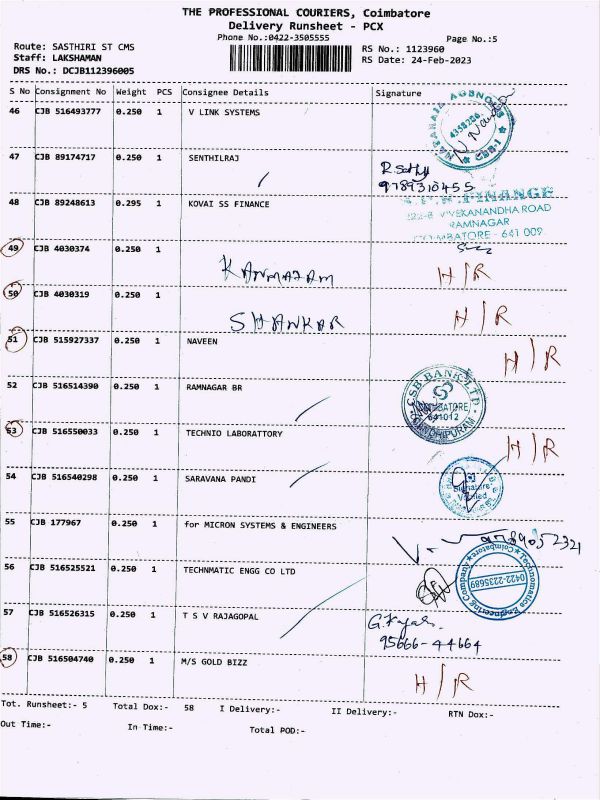 THE PROFESSIONAL COURIERS, Coimbatore
Delivery Runsheet - PCX
Phone No.:0422-3505555
Page No.:5
Route: SASTHIRI ST CMS
RS No.: 1123960
Staff: LAKSHAMAN
RS Date: 24-Feb-2023
DRS No.: DCJB112396005
S No Consignment No Weight PCS Consignee Details Signature
46 CJB 516493777 0.250 1 V LINK SYSTEMS
47 CJB 89174717 0.250 1 SENTHILRAJ
9789310455
48 CJB 89248613 0.295 1 KOVAI SS FINANCE
FINANGE
VIVEKANANDHA ROAD
RAMNAGAR
COIMBATORE - 641 009
49 CJB 4030374 0.250 1 H/R
50 CJB 4030319 0.250 1 SHANKAR H/R
51 CJB 515927337 0.250 1 NAVEEN H/R
52 CJB 516514390 0.250 1 RAMNAGAR BR
CSB BANK LTD
COIMBATORE
641012
GANDHIPURAM
53 CJB 516550033 0.250 1 TECHNIO LABORATTORY H/R
54 CJB 516540298 0.250 1 SARAVANA PANDI
Signature
Verified
55 CJB 177967 0.250 1 for MICRON SYSTEMS & ENGINEERS
56 CJB 516525521 0.250 1 TECHNMATIC ENGG CO LTD
Technomatics Engineering Company
Coimbatore
0422-2235689
57 CJB 516526315 0.250 1 T S V RAJAGOPAL
95666-44664
58 CJB 516504740 0.250 1 M/S GOLD BIZZ H/R
Tot. Runsheet:- 5 Total Dox:- 58 I Delivery:- II Delivery:- RTN Dox:-
Out Time:- In Time:- Total POD:-